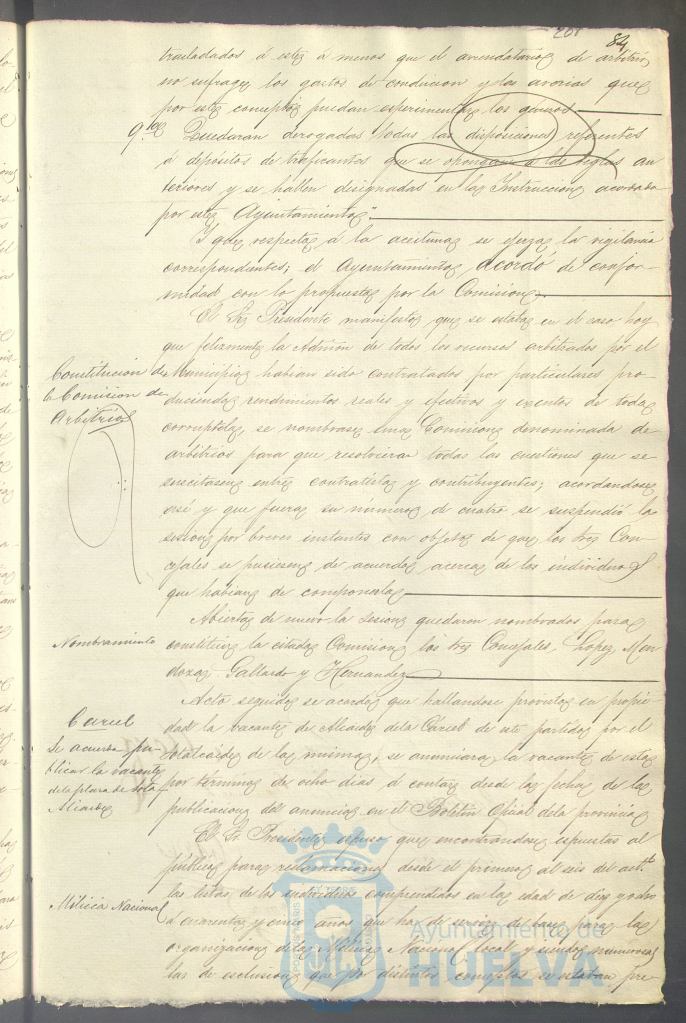 201
84
trasladados á estos á menos que el arrendatario de arbitrios
no sufrague los gastos de conduccion y las averias que
por este concepto puedan experimentar los generos
9.º Quedaran derogadas todas las disposiciones referentes
á depositos de traficantes que se opongan á las reglas an
teriores y se hallen designadas en la Instruccion acordada
por este Ayuntamiento".
Y que respecto á la aceituna se ejerza la vigilancia
correspondiente; el Ayuntamiento acordó de confor-
midad con lo propuesto por la Comision
Constitucion de
la Comision de
Arbitrios
El Sr. Presidente manifestó que se estaba en el caso hoy
que felizmente la Admon de todos los recursos arbitrados por el
Municipio habian sido contratados por particulares pro-
duciendo rendimientos reales y efectivos y exentos de toda
corruptela, se nombrase una Comision denominada de
arbitrios para que resolviera todas las cuestiones que se
suscitasen entre contratistas y contribuyentes; acordandose
asi y que fuera su número de cuatro se suspendió la
sesion por breves instantes con objeto de que los tres Con-
cejales se pusiesen de acuerdo acerca de los individuos
que habian de componerla
Nombramiento
Abierta de nuevo la sesion quedaron nombrados para
constituir la citada Comision los tres Concejales, Lopez, Men
doza, Gallardo y Hernandez
Carcel
Se acuerda pu-
blicar la vacante
de la plaza de Sota
Alcaide
Acto seguido se acordó que hallandose provista en propie
dad la vacante de Alcaide de la Cárcel de este partido por el
Sotalcaide de la misma, se anunciara la vacante de esta
por término de ocho dias á contar desde la fecha de la
publicacion del anuncio en el Boletin Oficial de la provincia
Milicia Nacional
El Sr. Presidente espuso que encontrandose espuestas al
público para reclamaciones desde el primero al seis del actl.
las listas de los individuos comprendidos en la edad de diez y ocho
á cuarenta y cinco años que ha de servir de base para la
organizacion de la Milicia Nacional local y siendo numerosas
las de esclusion que por distintos conceptos se estaban pre-
Ayuntamiento de
HUELVA